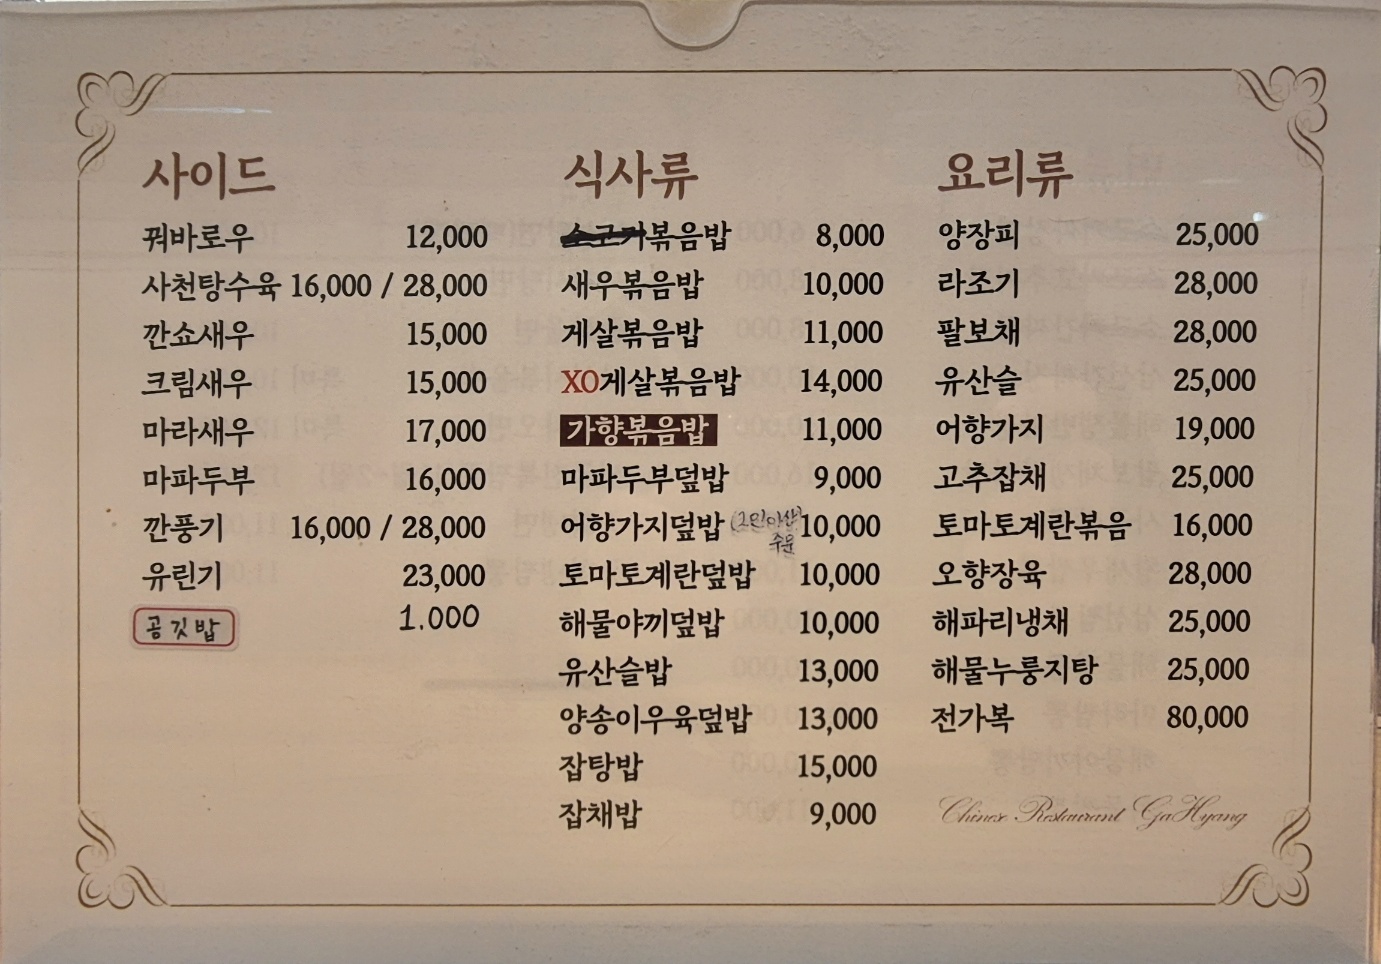 사이드
꿔바로우 12,000
사천탕수육 16,000 / 28,000
깐쇼새우 15,000
크림새우 15,000
마라새우 17,000
마파두부 16,000
깐풍기 16,000 / 28,000
유린기 23,000
공깃밥 1.000
식사류
소고기볶음밥 8,000
새우볶음밥 10,000
게살볶음밥 11,000
XO게살볶음밥 14,000
가향볶음밥 11,000
마파두부덮밥 9,000
어향가지덮밥 (2인이상 주문) 10,000
토마토계란덮밥 10,000
해물야끼덮밥 10,000
유산슬밥 13,000
양송이우육덮밥 13,000
잡탕밥 15,000
잡채밥 9,000
요리류
양장피 25,000
라조기 28,000
팔보채 28,000
유산슬 25,000
어향가지 19,000
고추잡채 25,000
토마토계란볶음 16,000
오향장육 28,000
해파리냉채 25,000
해물누룽지탕 25,000
전가복 80,000
Chinese Restaurant GaHyang